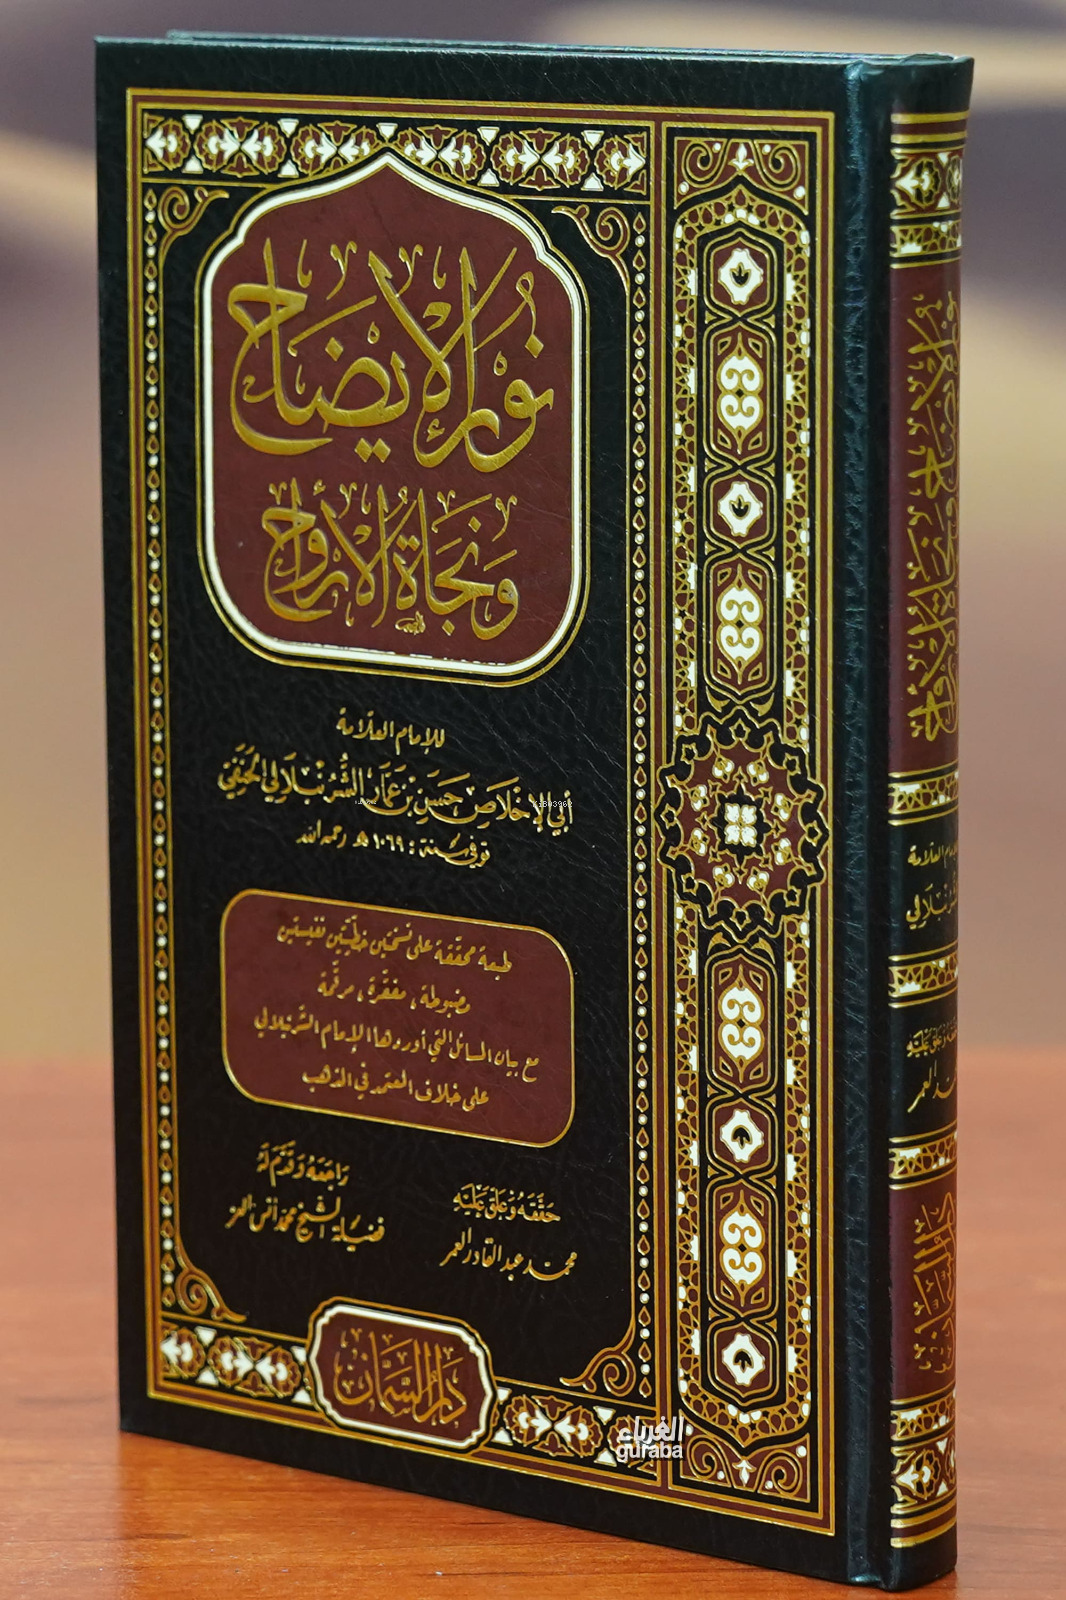 نُورُ الإِيضَاح
وَنَجَاةُ الأَرْوَاح
للإمام العلّامة
أبي الإخلاص حَسَن بن عَمَّار الشُّرُنْبلَالي الحَنَفِي
توفي سنة: ١٠٦٩ هـ رحمه الله
طبعة محققة على نسختين خطيتين نفيستين
مضبوطة، مفقرة، مرقّمة
مع بيان المسائل التي أوردها الإمام الشرنبلالي
على خلاف المعتمد في المذهب
حَقَّقَهُ وَعَلَّقَ عَلَيْهِ
محمد عبد القادر العمر
رَاجَعَهُ وَقَدَّمَ لَهُ
فضيلة الشيخ محمد أنس
دَارُ السَّمَّان
الغرباء
guraba
نور الإيضاح ونجاة الأرواح
للإمام العلامة
الشرنبلالي
حققه وعلق عليه
محمد العمر
دار السمان